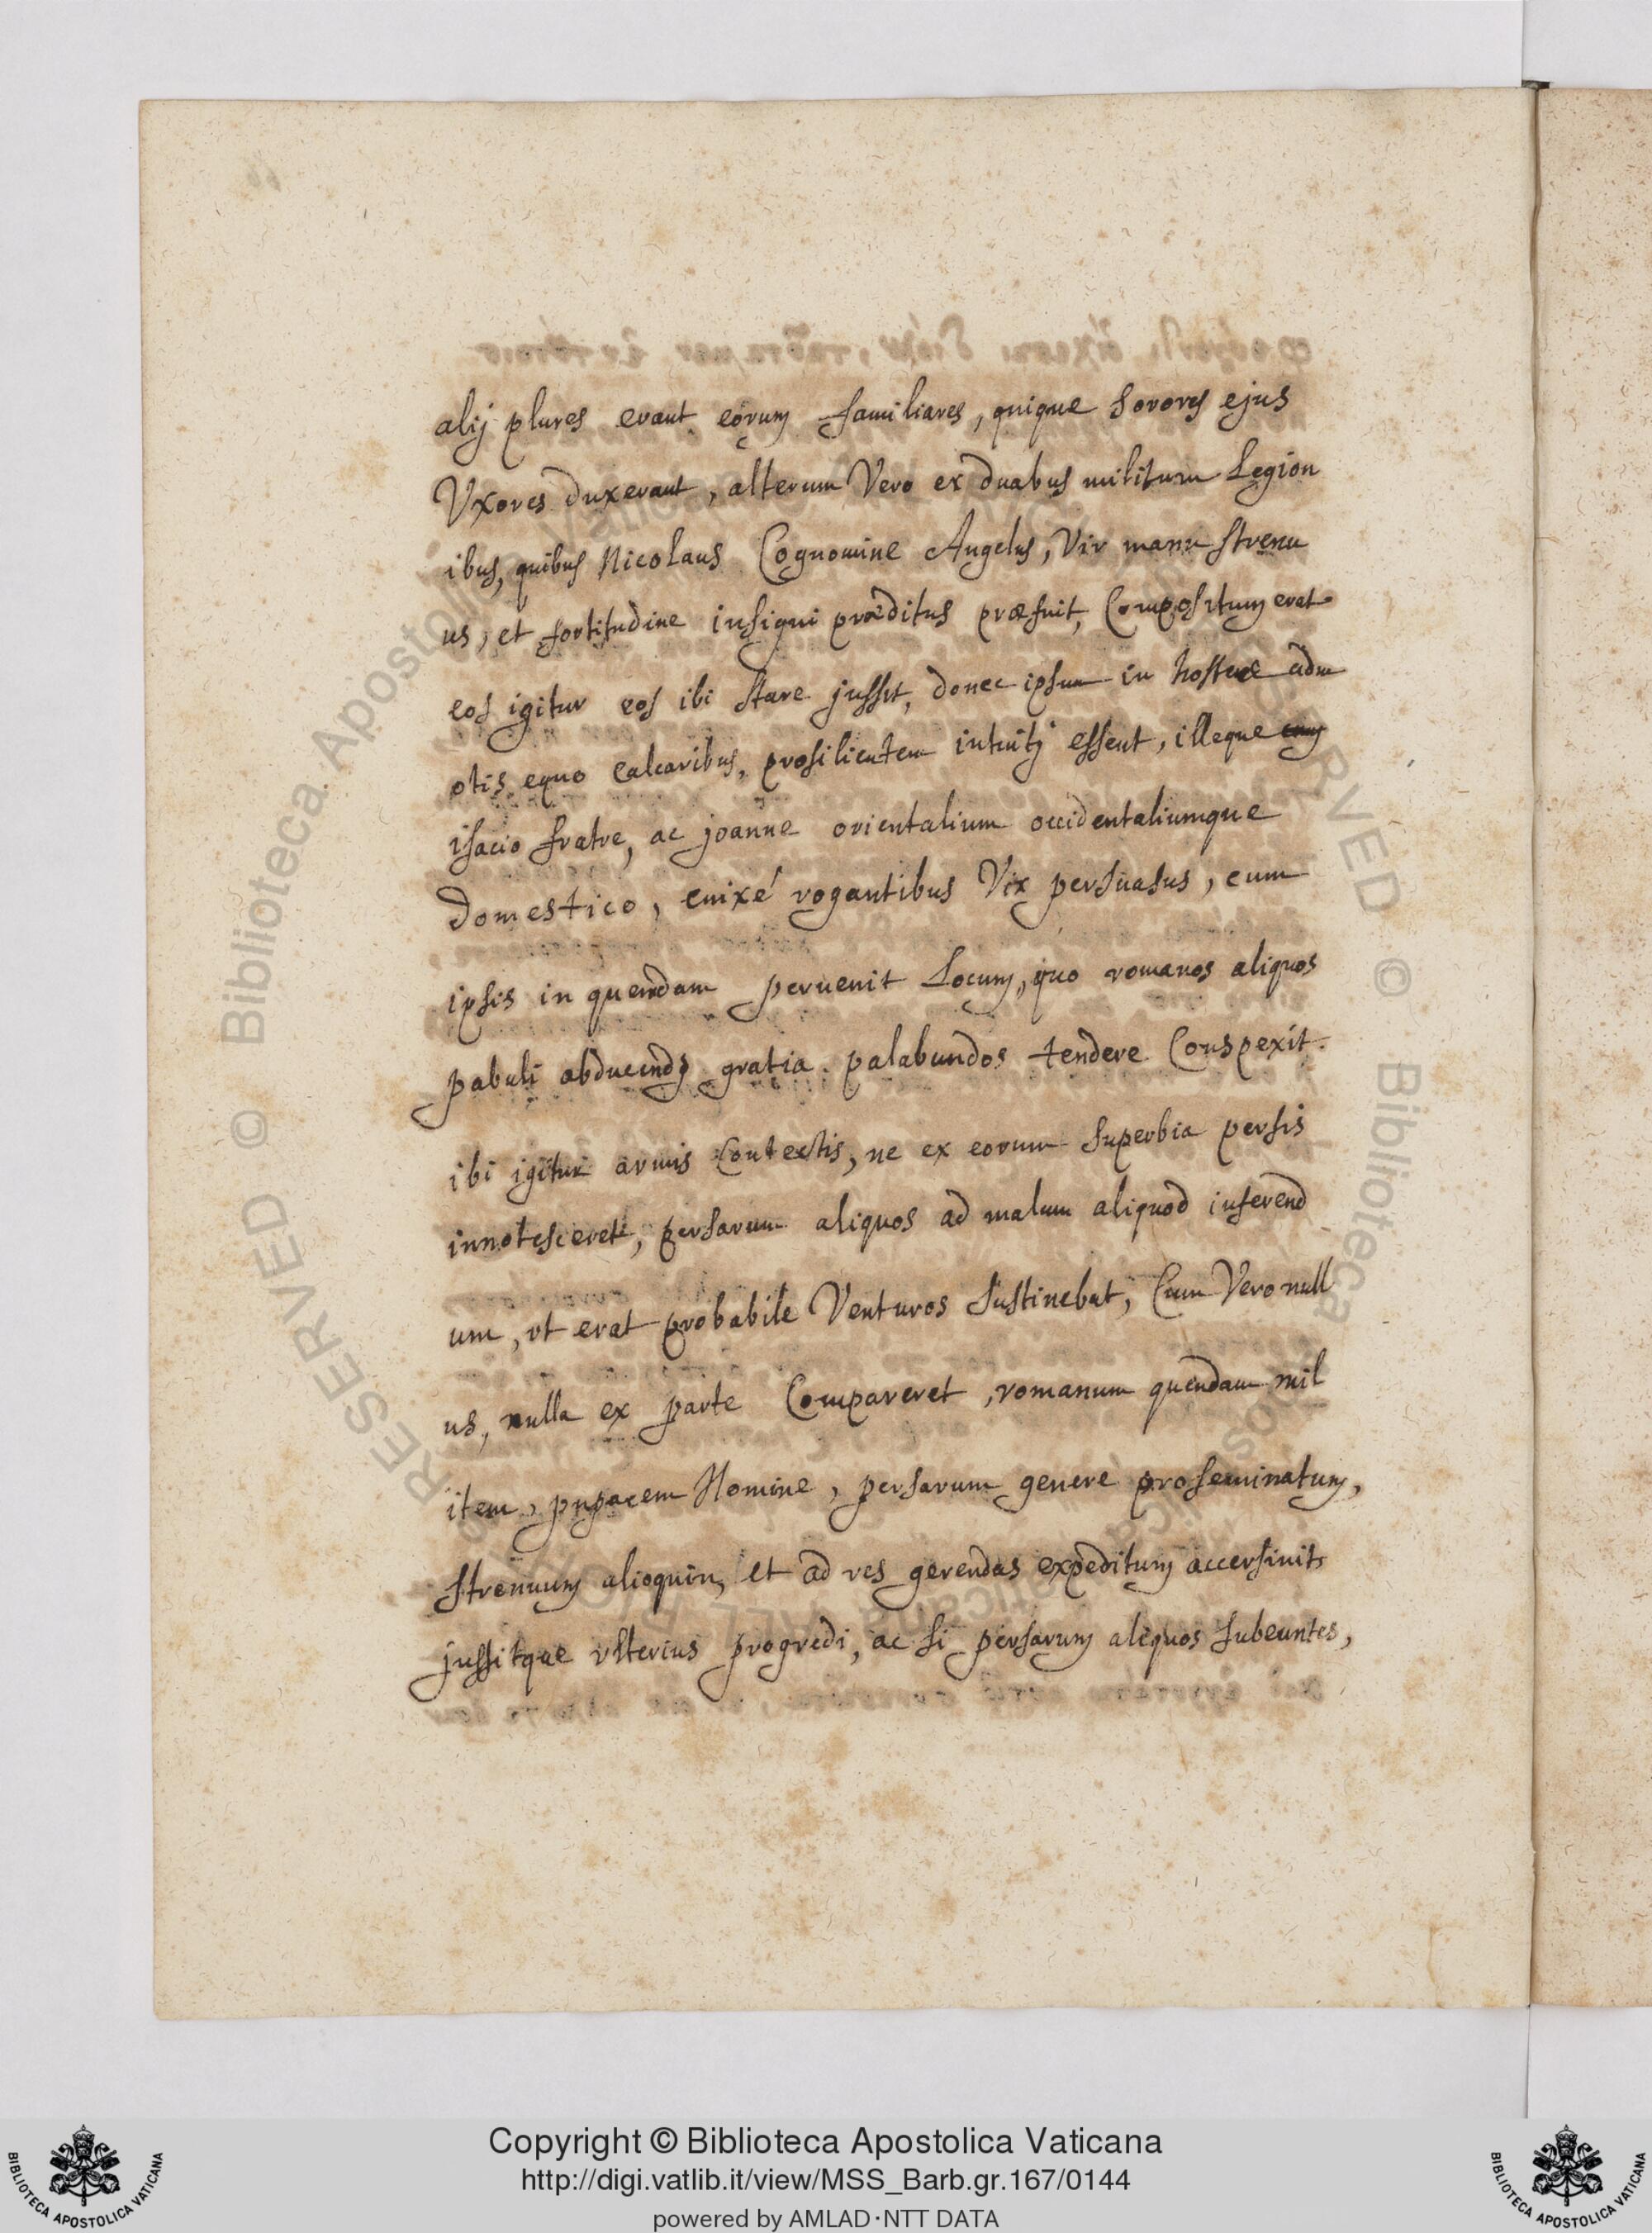 alij plures erant eorum familiares, quique sorores ejus
Vxores duxerant, alterum Vero ex duabus militum Legion
ibus, quibus Nicolaus Cognomine Angelus, Vir manu strenu
us, et fortitudine insigni præditus præfuit, Compositum erat
eos igitur eos ibi stare jussit, donec ipsum in hostes adm
otis equo calcaribus, prosilientem intuitj essent, illeque
isacio fratre, ac joanne orientalium occidentaliumque
domestico, enixé rogantibus Vix persuasus, cum
ipsis in quendam peruenit Locum, quo romanos aliquos
pabuli abducendj gratia palabundos tendere Conspexit.
ibi igitur armis Contectis, ne ex eorum superbia persis
innotesceret, persarum aliquos ad malum aliquod inferend
um, vt erat probabile Venturos sustinebat, Cum Vero null
us, nulla ex parte Compareret, romanum quendam mil
item, pupacem Nomine, persarum genere proseminatum,
strenuum alioquin, et ad res gerendas expeditum accersiuit
jussitque vlterius progredi, ac si persarum aliquos subeuntes,
RESERVED © Biblioteca Apostolica Vaticana
Copyright © Biblioteca Apostolica Vaticana
http://digi.vatlib.it/view/MSS_Barb.gr.167/0144
powered by AMLAD·NTT DATA
BIBLIOTECA APOSTOLICA VATICANA
BIBLIOTECA APOSTOLICA VATICANA